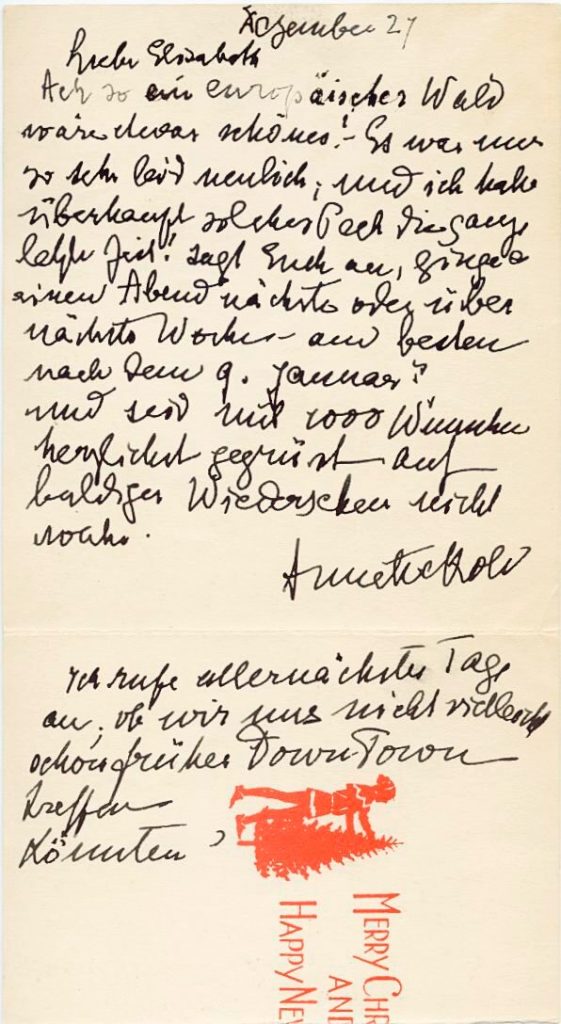 Dezember 27
Liebe Elisabeth
Ach so ein europäischer Wald
wäre etwas schönes! – Es war mir
so sehr leid neulich, und ich habe
überhaupt solches Pech die ganze
letzte Zeit! sagt Euch an, ginge
einen Abend nächste oder über
nächste Woche – am besten
nach dem 9. Januar?
und seid mit 1000 Wünschen
herzlichst gegrüsst auf
baldiges Wiedersehen nicht
wahr.
Annette Kolb
Ich rufe allernächster Tage
an, ob wir uns nicht vielleicht
schon früher Down Town
treffen
könnten?
MERRY CHR
AND
HAPPY NEW